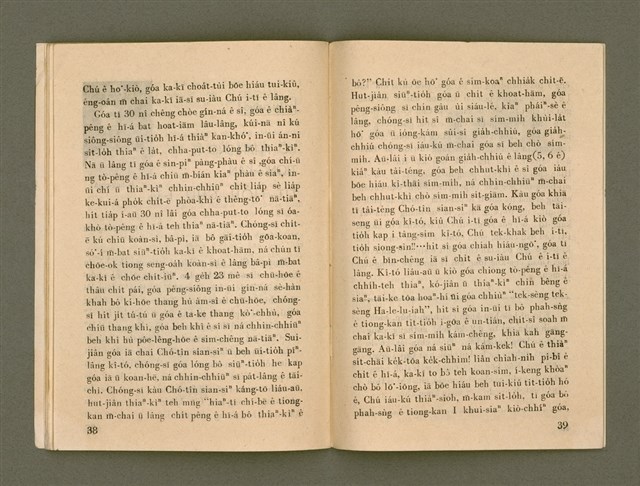 Chú ê ho͘-kiò, góa ka-kī choa̍t-tùi bōe hiáu tui-kiû,
èng-oán m̄ chai ka-kī iā-sī su-iàu Chú i-tī ê lâng.
Góa tī 30 nî chêng chòe gín-ná ê sî, góa ê chiàⁿ-
pêng ê hī-á bat hoat-iām lâu-lâng, kúi-nā nî kú
siông-siông ūi-tio̍h hī-á thiàⁿ kan-khó͘, in-ūi án-ni
sit-lo̍h thiaⁿ ê la̍t, chha-put-to lóng bô thiaⁿ-kìⁿ.
Nā ū lâng tī góa ê sin-piⁿ pàng-phàu ê sî, góa chí-ū
ng tò-pêng ê hī-á chiū m̄-bián kiaⁿ phàu ê siaⁿ, in-
ūi chí ū thiaⁿ-kìⁿ chhin-chhiūⁿ chi̍t lia̍p sè lia̍p
ke-kui-á pho̍k chi̍t-ē phòa-khì ê thêng-tō͘ nā-tiāⁿ,
hit tia̍p í-au 30 nî lâi góa chha-put-to lóng sī óa-
khò tò-pêng ê hī-á teh thiaⁿ nā-tiāⁿ. Chóng-sī chi̍t-
ē kú chiū koàn-sì, bā-pì, iā bô gāi-tio̍h gōa-koan,
só͘-í m̄-bat siūⁿ-tio̍h ka-kī ê khoat-hām, ná chún tī
chōe-ok tiong seng-oa̍h koàn-sì ê lâng bā-pì m̄-bat
ka-kī ê chōe chi̍t-iūⁿ. 4 ge̍h 23 mê sī chú-hōe ê
thâu chi̍t pái, góa pêng-siông in-ūi gín-ná sè-hàn
khah bô kî-hōe thang hù àm-sî ê chū-hōe, chóng-
sī hit ji̍t tú-tú ū góa ê ta-ke thang kò͘-chhù, góa
chiū thang khì, góa beh khì ê sî sī ná chhin-chhiūⁿ
beh khì hù pôe-lêng-hōe ê sim-chêng nā-tiāⁿ. Sui-
jiân góa iā chai Chó-tîn sian-siⁿ ū beh ūi-tio̍h pīⁿ-
lâng kî-tó, chóng-sī góa lóng bô siūⁿ-tio̍h he kap
góa iā ū koan-hē, ná chhin-chhiūⁿ sī pa̍t-lâng ê tāi-
chì. Chóng-sī kàu Chó-tîn sian-siⁿ kāng-tō liáu-āu,
hut-jiân thiaⁿ-kìⁿ teh mn̄g "hiaⁿ-tī chí-bē ê tiong-
kan m̄-chai ū lâng chi̍t pêng ê hī-á bô thiaⁿ-kìⁿ ê
38
bô?!" Chit kù ōe hō͘ góa ê sim-koaⁿ chhia̍k chi̍t-ē.
Hut-jiân siūⁿ-tio̍h góa ū chit ê khoat-hām, góa
pêng-siông sī chin gâu ùi siáu-lè, kiaⁿ pháiⁿ-sè ê
lâng, chóng-sī hit sî m̄-chai sī sim-mi̍h khùi-la̍t
hō͘ góa ū ióng-kám sûi-sî gia̍h-chhiú, góa gia̍h-
chhiú chóng-sī iáu-kú m̄-chai góa sī beh chò sim-
mi̍h. Āu-lâi i ū kiò goán gia̍h-chhiú ê lâng(5, 6 ê)
kiâⁿ kàu tâi-têng, góa beh chhut-khì ê sî góa iáu
bōe hiáu kî-thāi sim-mi̍h, ná chhin-chhiūⁿ m̄-chai
beh chhut-khì chò sim-mi̍h si̍t-giām. Kàu góa khiā
tī tâi-têng Chó-tîn sian-siⁿ kā góa kóng, beh tāi-
seng ūi góa kî-tó, kiû Chú i-tī góa ê hī-á kiò góa
tio̍h kap i tâng-sim kî-tó, Chú tek-khak beh i-tī,
tio̍h siong-sìn!!…hit sî góa chiah hiáu-ngō͘, góa tī
Chú ê bīn-chêng iā sī chit ê su-iàu Chú ê i-tī ê
lâng. Kî-tó liáu-āu ū kiò góa chiong tò-pêng ê hī-á
chhih-teh thiaⁿ, kó-jiân ū thiaⁿ-kìⁿ chi̍n bêng ê
siaⁿ, tāi-ke tōa hoaⁿ-hí ūi góa chhiùⁿ "tek-sèng tek-
sèng Ha-le-lu-iah", hit sî góa in-ūi tī bô phah-sǹg
ê tiong-kan tit-tio̍h i-góa ê un-tián, chi̍t-sî soah m̄
chai ka-kī sī sim-mi̍h kám-chêng, khiā kah gāng-
gāng. Āu-lâi góa ná siūⁿ ná kám-kek! Chú ê thiàⁿ
si̍t-chāi ke̍k-tōa ke̍k-chhim! liân chiah-nih pi-bî ê
chit ê hī-á, ka-kī to bô teh koan-sim, i-keng khòaⁿ
chò bô lō͘-iōng, iā bōe hiáu beh tui-kiû tit-tio̍h hó
ê, Chú iáu-kú thiàⁿ-sioh, m̄-kam sit-lo̍h, tī góa bô
phah-sǹg ê tiong-kan I khui-siaⁿ kiò-chhíⁿ góa,
39